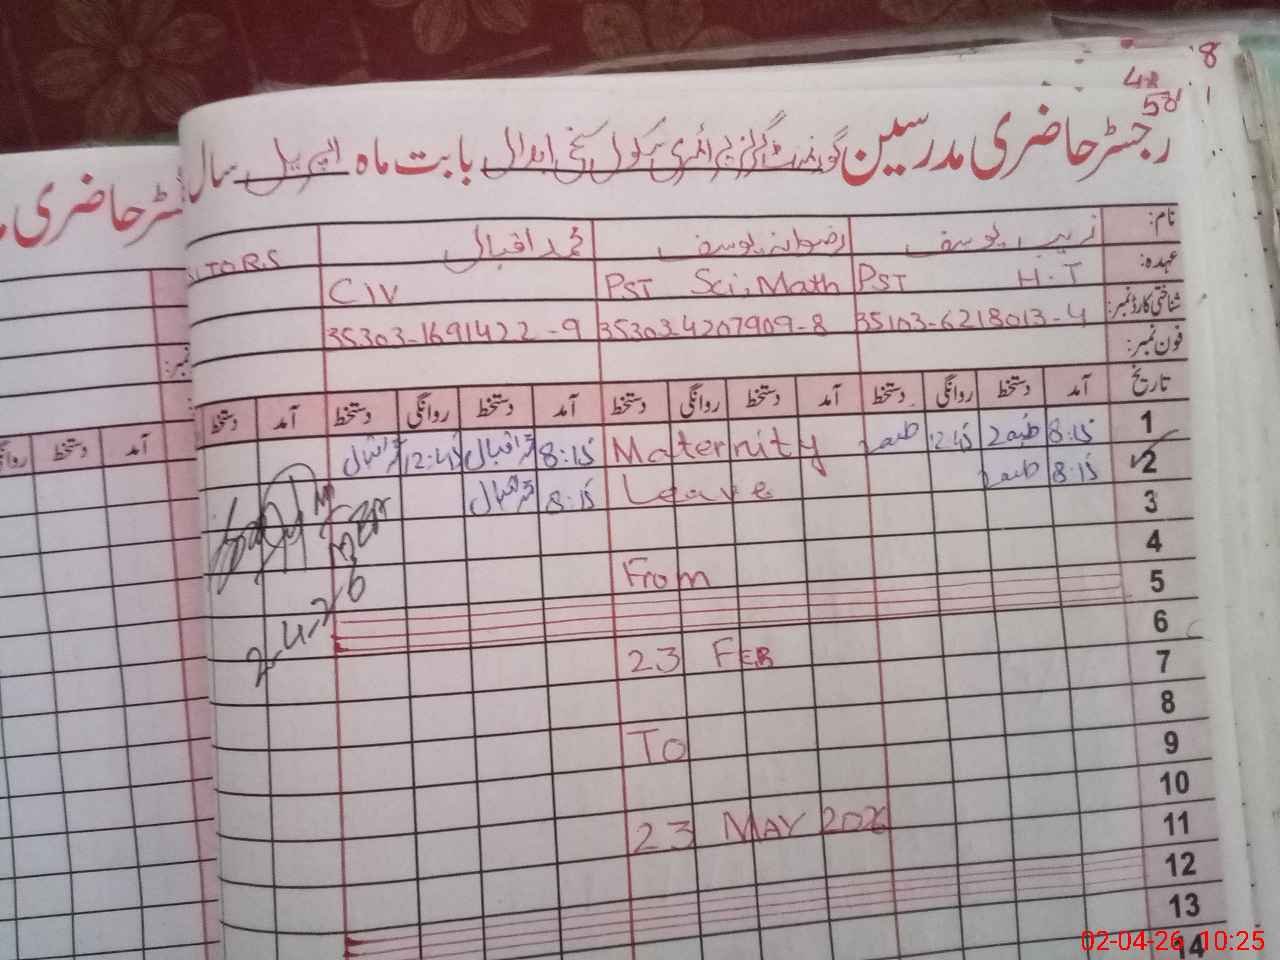 8
42
58
رجسٹر حاضری مدرسین گورنمنٹ گرلز پرائمری سکول سخی ابدال بابت ماہ اپریل سال
نام: زیب یوسف رضوانہ یوسف محمد اقبال
عہدہ: PST H.T PST Sci, Math CIV
شناختی کارڈ نمبر: 35103-6218013-4 35303-4207909-8 35303-1691422-9
فون نمبر:
تاریخ آمد دستخط روانگی دستخط آمد دستخط روانگی دستخط آمد دستخط روانگی دستخط آمد دستخط
1 8:15 12:45 Maternity 8:15 محمد اقبال 12:45 محمد اقبال
2 8:15 Leave 8:15 محمد اقبال
3
4
5 From
6
7 23 FEB
8
9 To
10
11 23 MAY 2026
12
13
14
2-4-26
حاضری
آمد دستخط
نمبر:
02-04-26 10:25